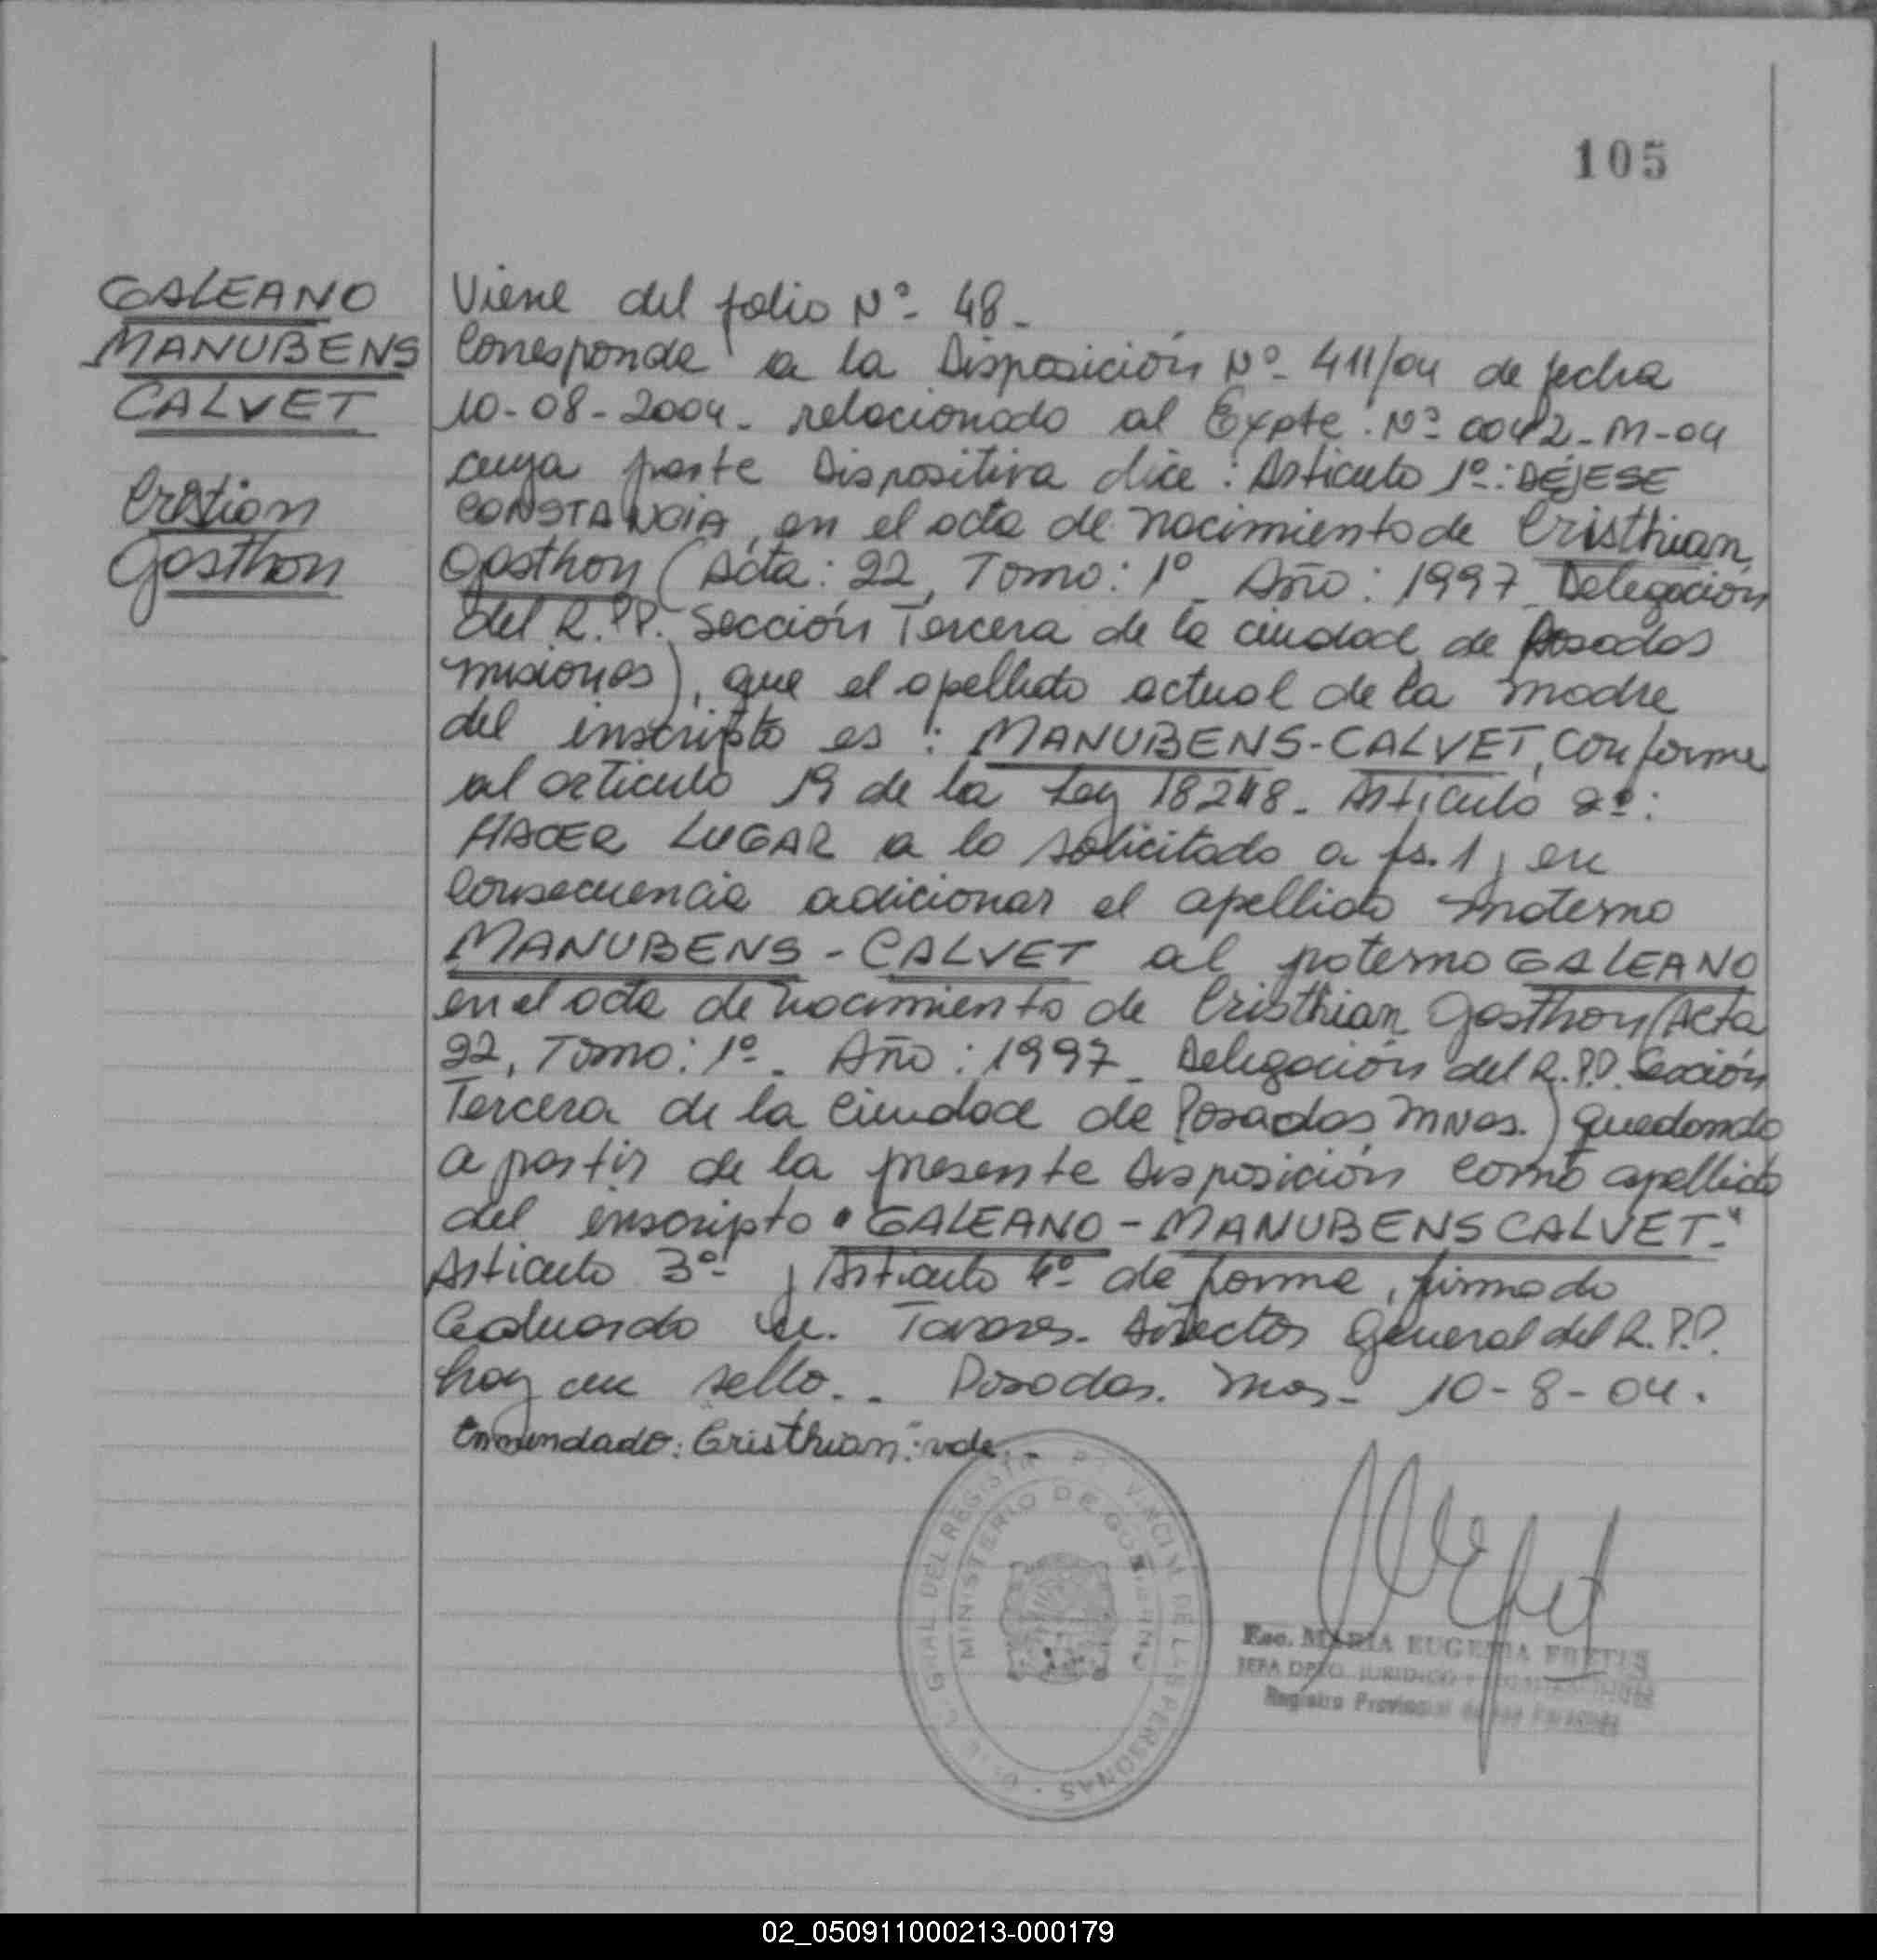 105
GALEANO
MANUBENS
CALVET
Cristian
Gasthon
Viene del folio Nº- 48-
Corresponde a la Disposición Nº- 411/04 de fecha
10-08-2004- relacionado al Expte. Nº- 0042-M-04
cuya parte Dispositiva dice: Artículo 1º-: DÉJESE
CONSTANCIA, en el acta de nacimiento de Cristhian
Gasthon (Acta: 22, Tomo: 1º- Año: 1997- Delegación
del R.P.P. Sección Tercera de la ciudad de Posadas
misiones), que el apellido actual de la madre
del inscripto es: MANUBENS-CALVET, conforme
al artículo 19 de la Ley 18248- Artículo 2º:
HACER LUGAR a lo solicitado a fs. 1, en
consecuencia adicionar el apellido materno
MANUBENS-CALVET al paterno GALEANO
en el acta de nacimiento de Cristhian Gasthon (Acta
22, Tomo: 1º- Año: 1997- Delegación del R.P.P. Sección
Tercera de la Ciudad de Posadas Mnes.) quedando
a partir de la presente Disposición como apellido
del inscripto "GALEANO-MANUBENS CALVET-"
Artículo 3º- y Artículo 4º- de forma, firmado
Eduardo M. Tavares- Director General del R.P.P.
hay un sello.- Posadas. Mnes- 10-8-04.
Enmendado: "Cristhian": vale.-
MINISTERIO DE GOBIERNO
GRAL DEL REGISTRO PROVINCIAL DE LAS PERSONAS
Esc. MARIA EUGENIA
JEFA DPTO. JURIDICO Y
Registro Provincial de las Personas
02_050911000213-000179